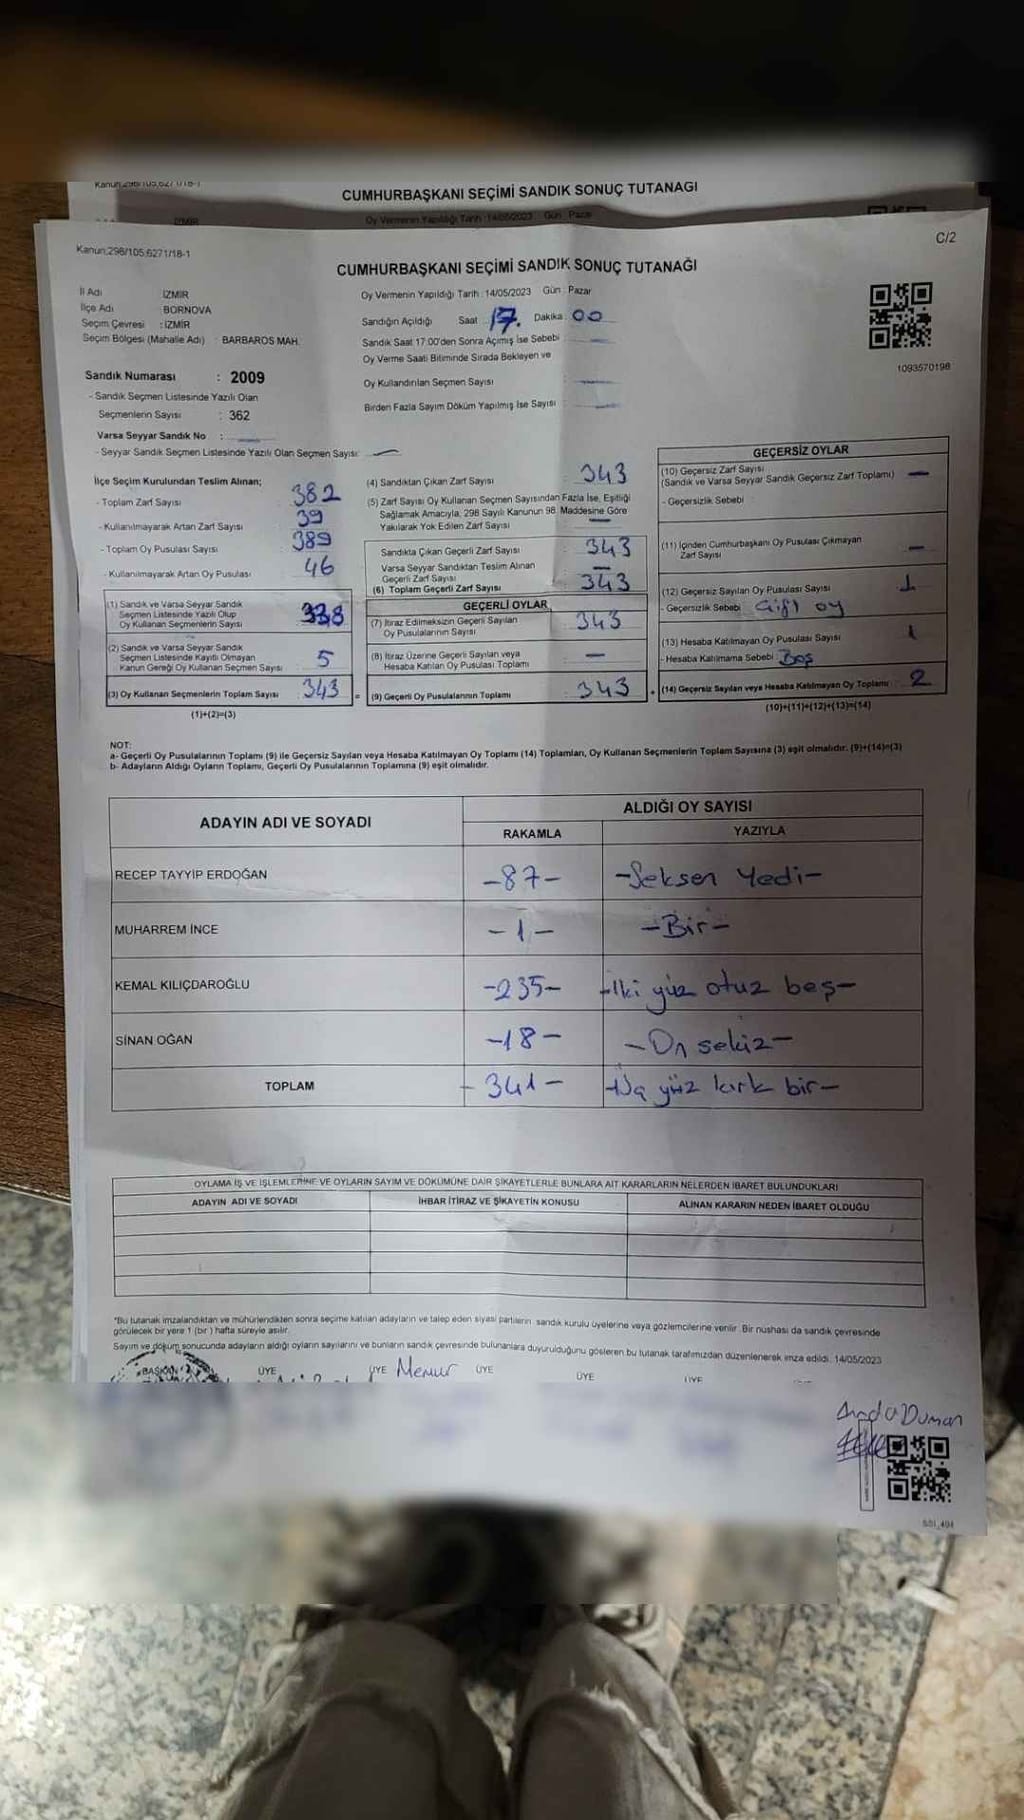 Kanun;298/105,6271/18-1
CUMHURBAŞKANI SEÇİMİ SANDIK SONUÇ TUTANAĞI
İZMİR
Oy Vermenin Yapıldığı Tarih :14/05/2023 Gün : Pazar
C/2
Kanun;298/105,6271/18-1
CUMHURBAŞKANI SEÇİMİ SANDIK SONUÇ TUTANAĞI
İl Adı : İZMİR
İlçe Adı : BORNOVA
Seçim Çevresi : İZMİR
Seçim Bölgesi (Mahalle Adı) : BARBAROS MAH.
Oy Vermenin Yapıldığı Tarih : 14/05/2023 Gün : Pazar
Sandığın Açıldığı Saat : 17. Dakika : 00
Sandık Saat 17:00'den Sonra Açımış İse Sebebi :
Oy Verme Saati Bitiminde Sırada Bekleyen ve
Oy Kullandırılan Seçmen Sayısı :
Birden Fazla Sayım Döküm Yapılmış İse Sayısı :
1093570198
Sandık Numarası : 2009
- Sandık Seçmen Listesinde Yazılı Olan
Seçmenlerin Sayısı : 362
Varsa Seyyar Sandık No :
- Seyyar Sandık Seçmen Listesinde Yazılı Olan Seçmen Sayısı: —
İlçe Seçim Kurulundan Teslim Alınan;
- Toplam Zarf Sayısı : 382
- Kullanılmayarak Artan Zarf Sayısı : 39
- Toplam Oy Pusulası Sayısı : 389
- Kullanılmayarak Artan Oy Pusulası : 46
(1) Sandık ve Varsa Seyyar Sandık
Seçmen Listesinde Yazılı Olup
Oy Kullanan Seçmenlerin Sayısı : 338
(2) Sandık ve Varsa Seyyar Sandık
Seçmen Listesinde Kayıtlı Olmayan
Kanun Gereği Oy Kullanan Seçmen Sayısı : 5
(3) Oy Kullanan Seçmenlerin Toplam Sayısı : 343 =
(1)+(2)=(3)
(4) Sandıktan Çıkan Zarf Sayısı : 343
(5) Zarf Sayısı Oy Kullanan Seçmen Sayısından Fazla İse, Eşitliği
Sağlamak Amacıyla, 298 Sayılı Kanunun 98. Maddesine Göre
Yakılarak Yok Edilen Zarf Sayısı : —
Sandıkta Çıkan Geçerli Zarf Sayısı : 343
Varsa Seyyar Sandıktan Teslim Alınan
Geçerli Zarf Sayısı : —
(6) Toplam Geçerli Zarf Sayısı : 343
GEÇERLİ OYLAR
(7) İtiraz Edilmeksizin Geçerli Sayılan
Oy Pusulalarının Sayısı : 343
(8) İtiraz Üzerine Geçerli Sayılan veya
Hesaba Katılan Oy Pusulası Toplamı : —
(9) Geçerli Oy Pusulalarının Toplamı : 343 +
GEÇERSİZ OYLAR
(10) Geçersiz Zarf Sayısı
(Sandık ve Varsa Seyyar Sandık Geçersiz Zarf Toplamı) : —
- Geçersizlik Sebebi :
(11) İçinden Cumhurbaşkanı Oy Pusulası Çıkmayan
Zarf Sayısı : —
(12) Geçersiz Sayılan Oy Pusulası Sayısı : 1
- Geçersizlik Sebebi : Çift oy
(13) Hesaba Katılmayan Oy Pusulası Sayısı : 1
- Hesaba Katılmama Sebebi : Boş
(14) Geçersiz Sayılan veya Hesaba Katılmayan Oy Toplamı : 2
(10)+(11)+(12)+(13)=(14)
NOT:
a- Geçerli Oy Pusulalarının Toplamı (9) ile Geçersiz Sayılan veya Hesaba Katılmayan Oy Toplamı (14) Toplamları, Oy Kullanan Seçmenlerin Toplam Sayısına (3) eşit olmalıdır. (9)+(14)=(3)
b- Adayların Aldığı Oyların Toplamı, Geçerli Oy Pusulalarının Toplamına (9) eşit olmalıdır.
ADAYIN ADI VE SOYADI
ALDIĞI OY SAYISI
RAKAMLA YAZIYLA
RECEP TAYYİP ERDOĞAN -87- -Seksen Yedi-
MUHARREM İNCE -1- -Bir-
KEMAL KILIÇDAROĞLU -235- -İki yüz otuz beş-
SİNAN OĞAN -18- -On sekiz-
TOPLAM -341- -Üç yüz kırk bir-
OYLAMA İŞ VE İŞLEMLERİNE VE OYLARIN SAYIM VE DÖKÜMÜNE DAİR ŞİKAYETLERLE BUNLARA AİT KARARLARIN NELERDEN İBARET BULUNDUKLARI
ADAYIN ADI VE SOYADI İHBAR İTİRAZ VE ŞİKAYETİN KONUSU ALINAN KARARIN NEDEN İBARET OLDUĞU
*Bu tutanak imzalandıktan ve mühürlendikten sonra seçime katılan adayların ve talep eden siyasi partilerin sandık kurulu üyelerine veya gözlemcilerine verilir. Bir nüshası da sandık çevresinde
görülecek bir yere 1 (bir) hafta süreyle asılır.
Sayım ve döküm sonucunda adayların aldığı oyların sayılarını ve bunların sandık çevresinde bulunanlara duyurulduğunu gösteren bu tutanak tarafımızdan düzenlenerek imza edildi. 14/05/2023
BAŞKAN ÜYE ÜYE Memur ÜYE ÜYE ÜYE
Duman